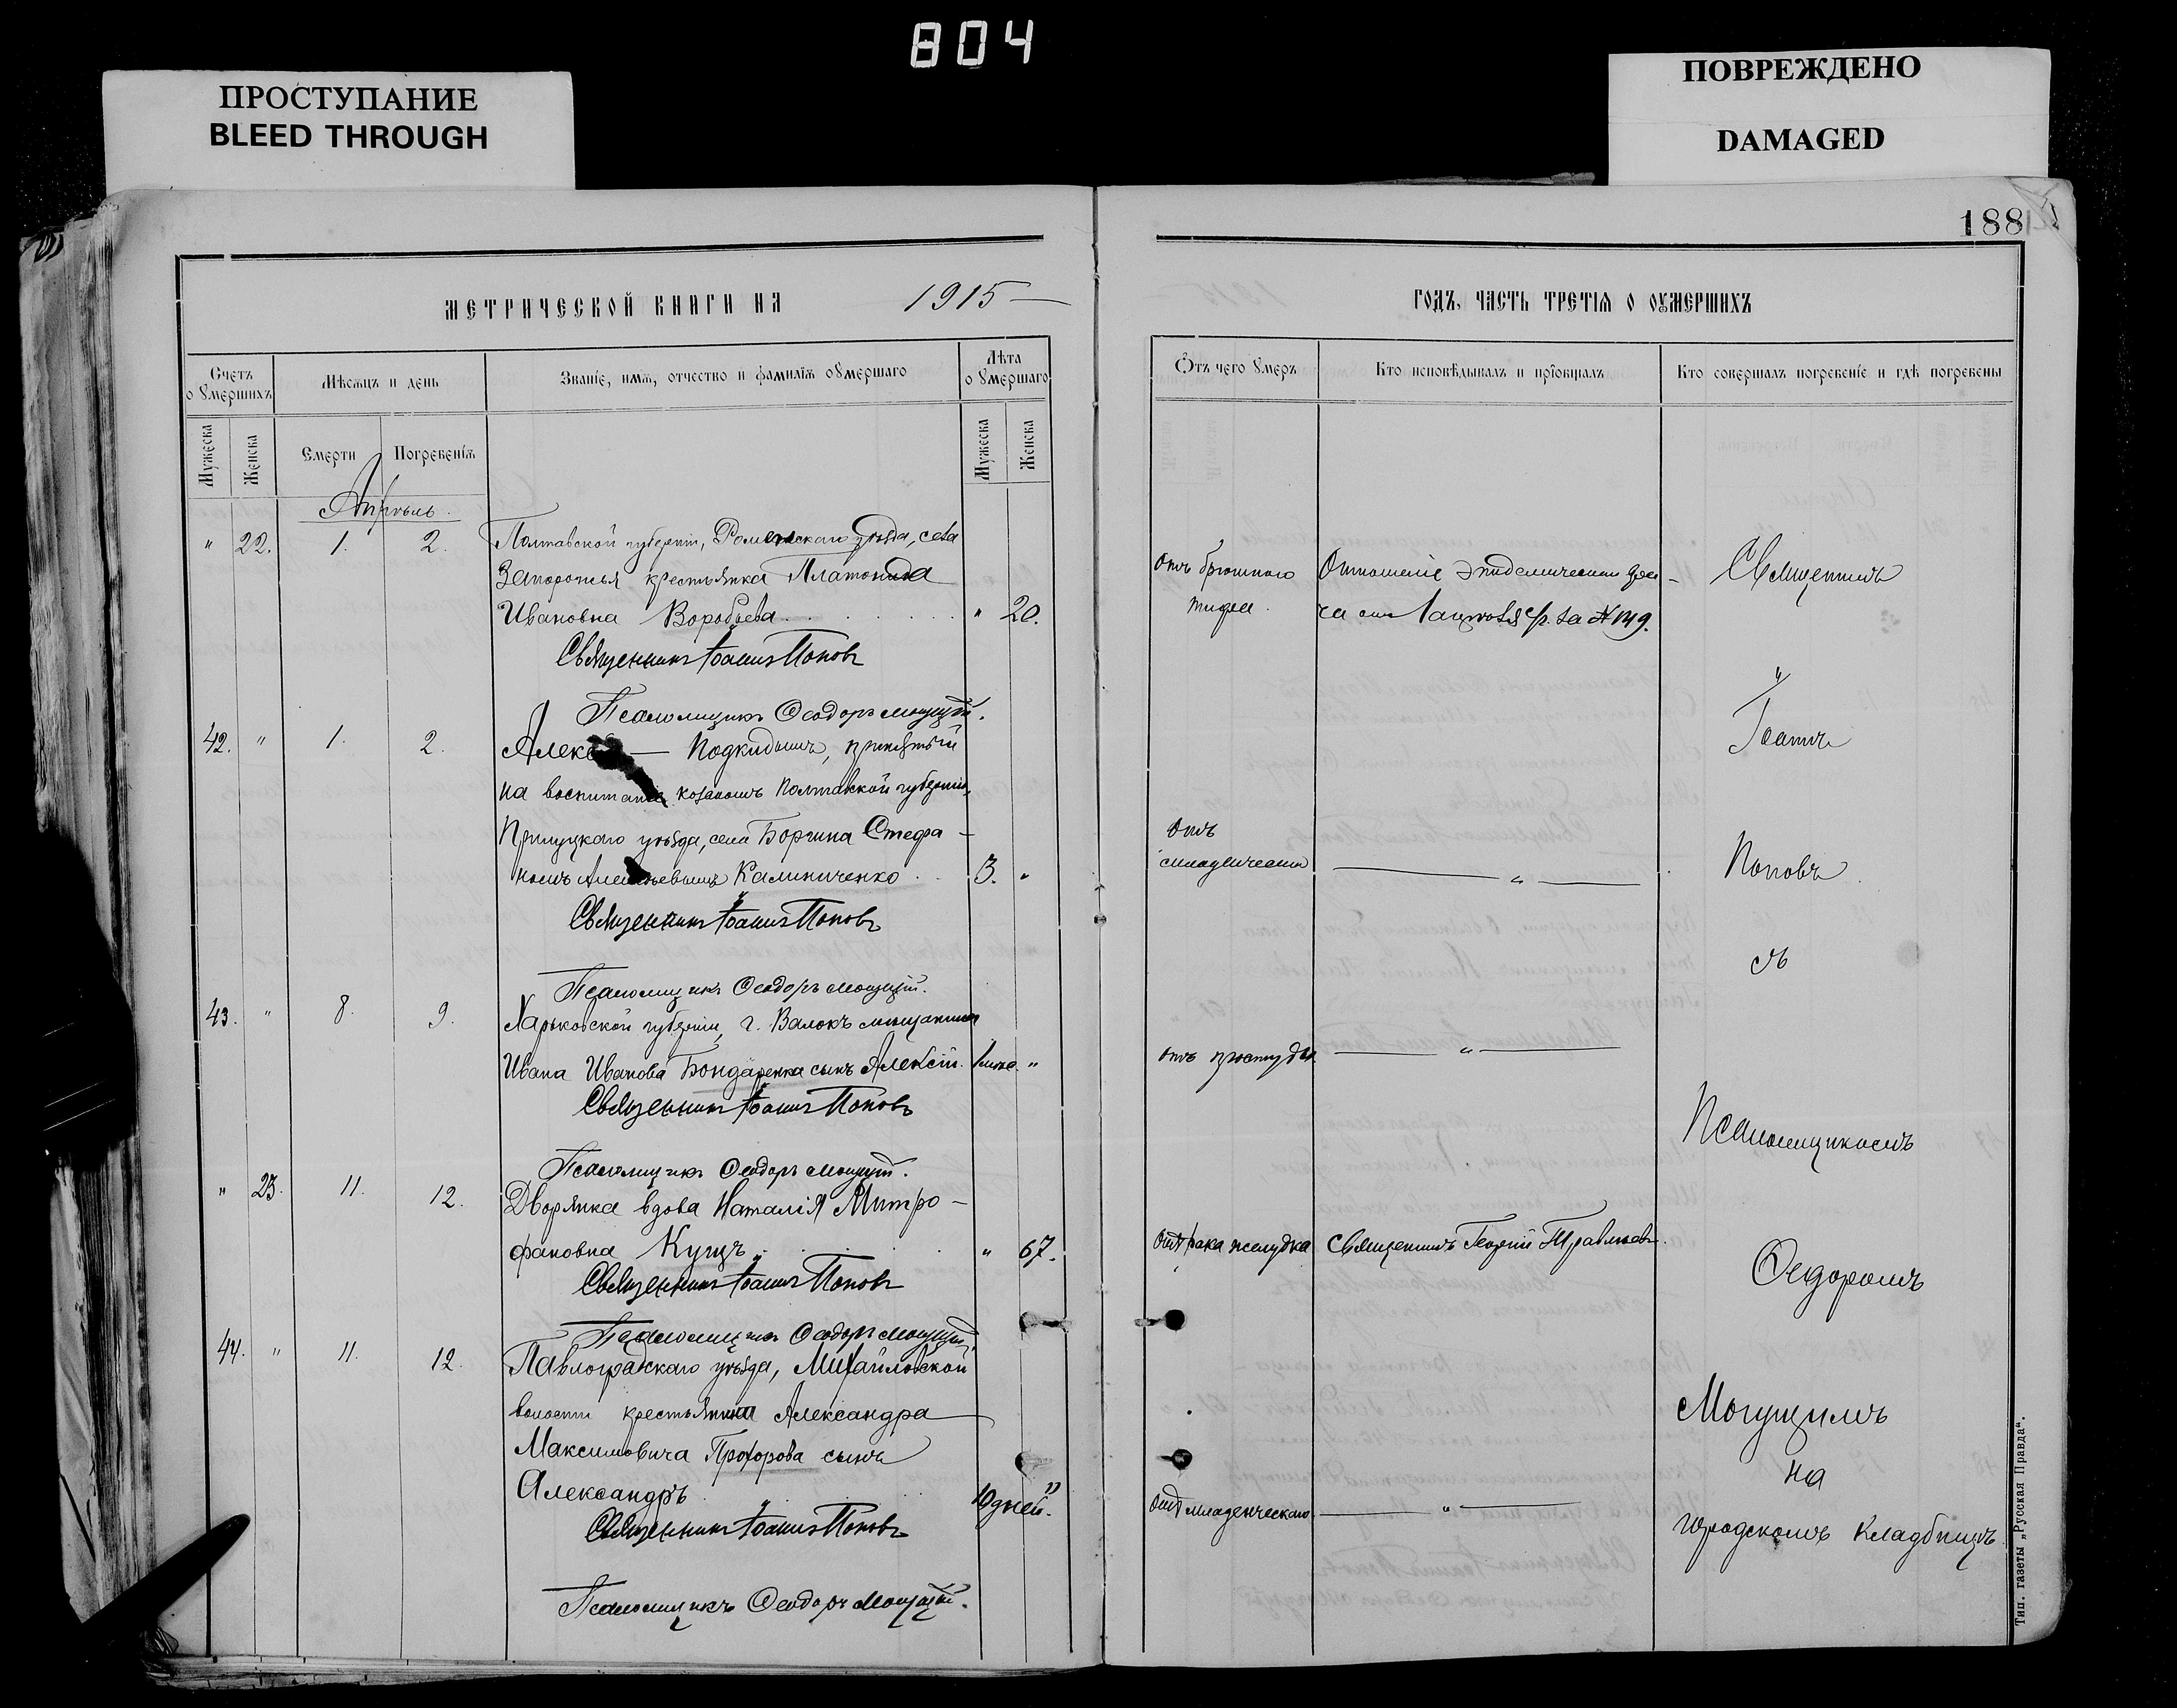 804
ПРОСТУПАНИЕ
BLEED THROUGH
ПОВРЕЖДЕНО
DAMAGED
188
МЕТРИЧЕСКОЙ КНИГИ НА 1915
Счетъ о умершихъ
Мѣсяцъ и день
Званіе, имя, отчество и фамилія оумершаго
Лѣта оумершаго
Мужеска
Женска
Смерти
Погребенія
Мужеска
Женска
Апрѣль.
" 22. 1. 2. Полтавской губерніи, Роменскаго уѣзда, села
Запорожья крестьянка Платонида
Ивановна Воробьева " 20.
Священникъ Іоаннъ Поповъ
Псаломщикъ Ѳеодоръ Могущій.
42. " 1. 2. Алекс — Подкидышъ, принятый
на воспитаніе козакомъ Полтавской губерніи,
Прилуцкаго уѣзда, села Стефа-
номъ Калиниченко 3. "
Священникъ Іоаннъ Поповъ
Псаломщикъ Ѳеодоръ Могущій.
43. " 8. 9. Харьковской губерніи, г. Валокъ мѣщанина
Ивана Иванова Бондаренка сынъ Алексѣй. "
Священникъ Іоаннъ Поповъ
Псаломщикъ Ѳеодоръ Могущій.
" 23. 11. 12. Дворянка вдова Наталія Митро-
фановна Кущъ " 67.
Священникъ Іоаннъ Поповъ
Псаломщикъ Ѳеодоръ Могущій.
44. " 11. 12. Павлоградскаго уѣзда, Михайловской
волости крестьянина Александра
Максимовича Прохорова сынъ
Александръ 10 дней. "
Священникъ Іоаннъ Поповъ
Псаломщикъ Ѳеодоръ Могущій.
ГОДЪ, ЧАСТЬ ТРЕТІЯ О ОУМЕРШИХЪ
Отъ чего умеръ
Кто исповѣдывалъ и пріобщалъ
Кто совершалъ погребеніе и гдѣ погребены
отъ брюшного
тифа.
Отношеніе эпидемическаго
за № 149.
отъ
младенческой
— " —
отъ простуды
— " —
отъ рака желудка
Священникъ Георгій
отъ младенческаго
— " —
Священникъ
Іоаннъ
Поповъ
съ
Псаломщикомъ
Ѳеодоромъ
Могущимъ
на
городскомъ кладбищѣ.
Тип. газеты „Русская Правда“.